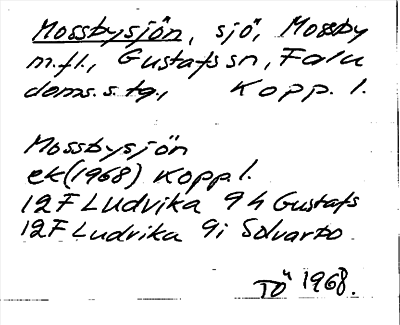 Mossbysjön, sjö, Mossby
m.fl., Gustafs sn, Falu
doms.s tg., Kopp. l.
Mossbysjön
ek(1968) Koppl.
12F Ludvika 9 h Gustafs
12F Ludvika 9i Solvarbo
TÖ 1968.